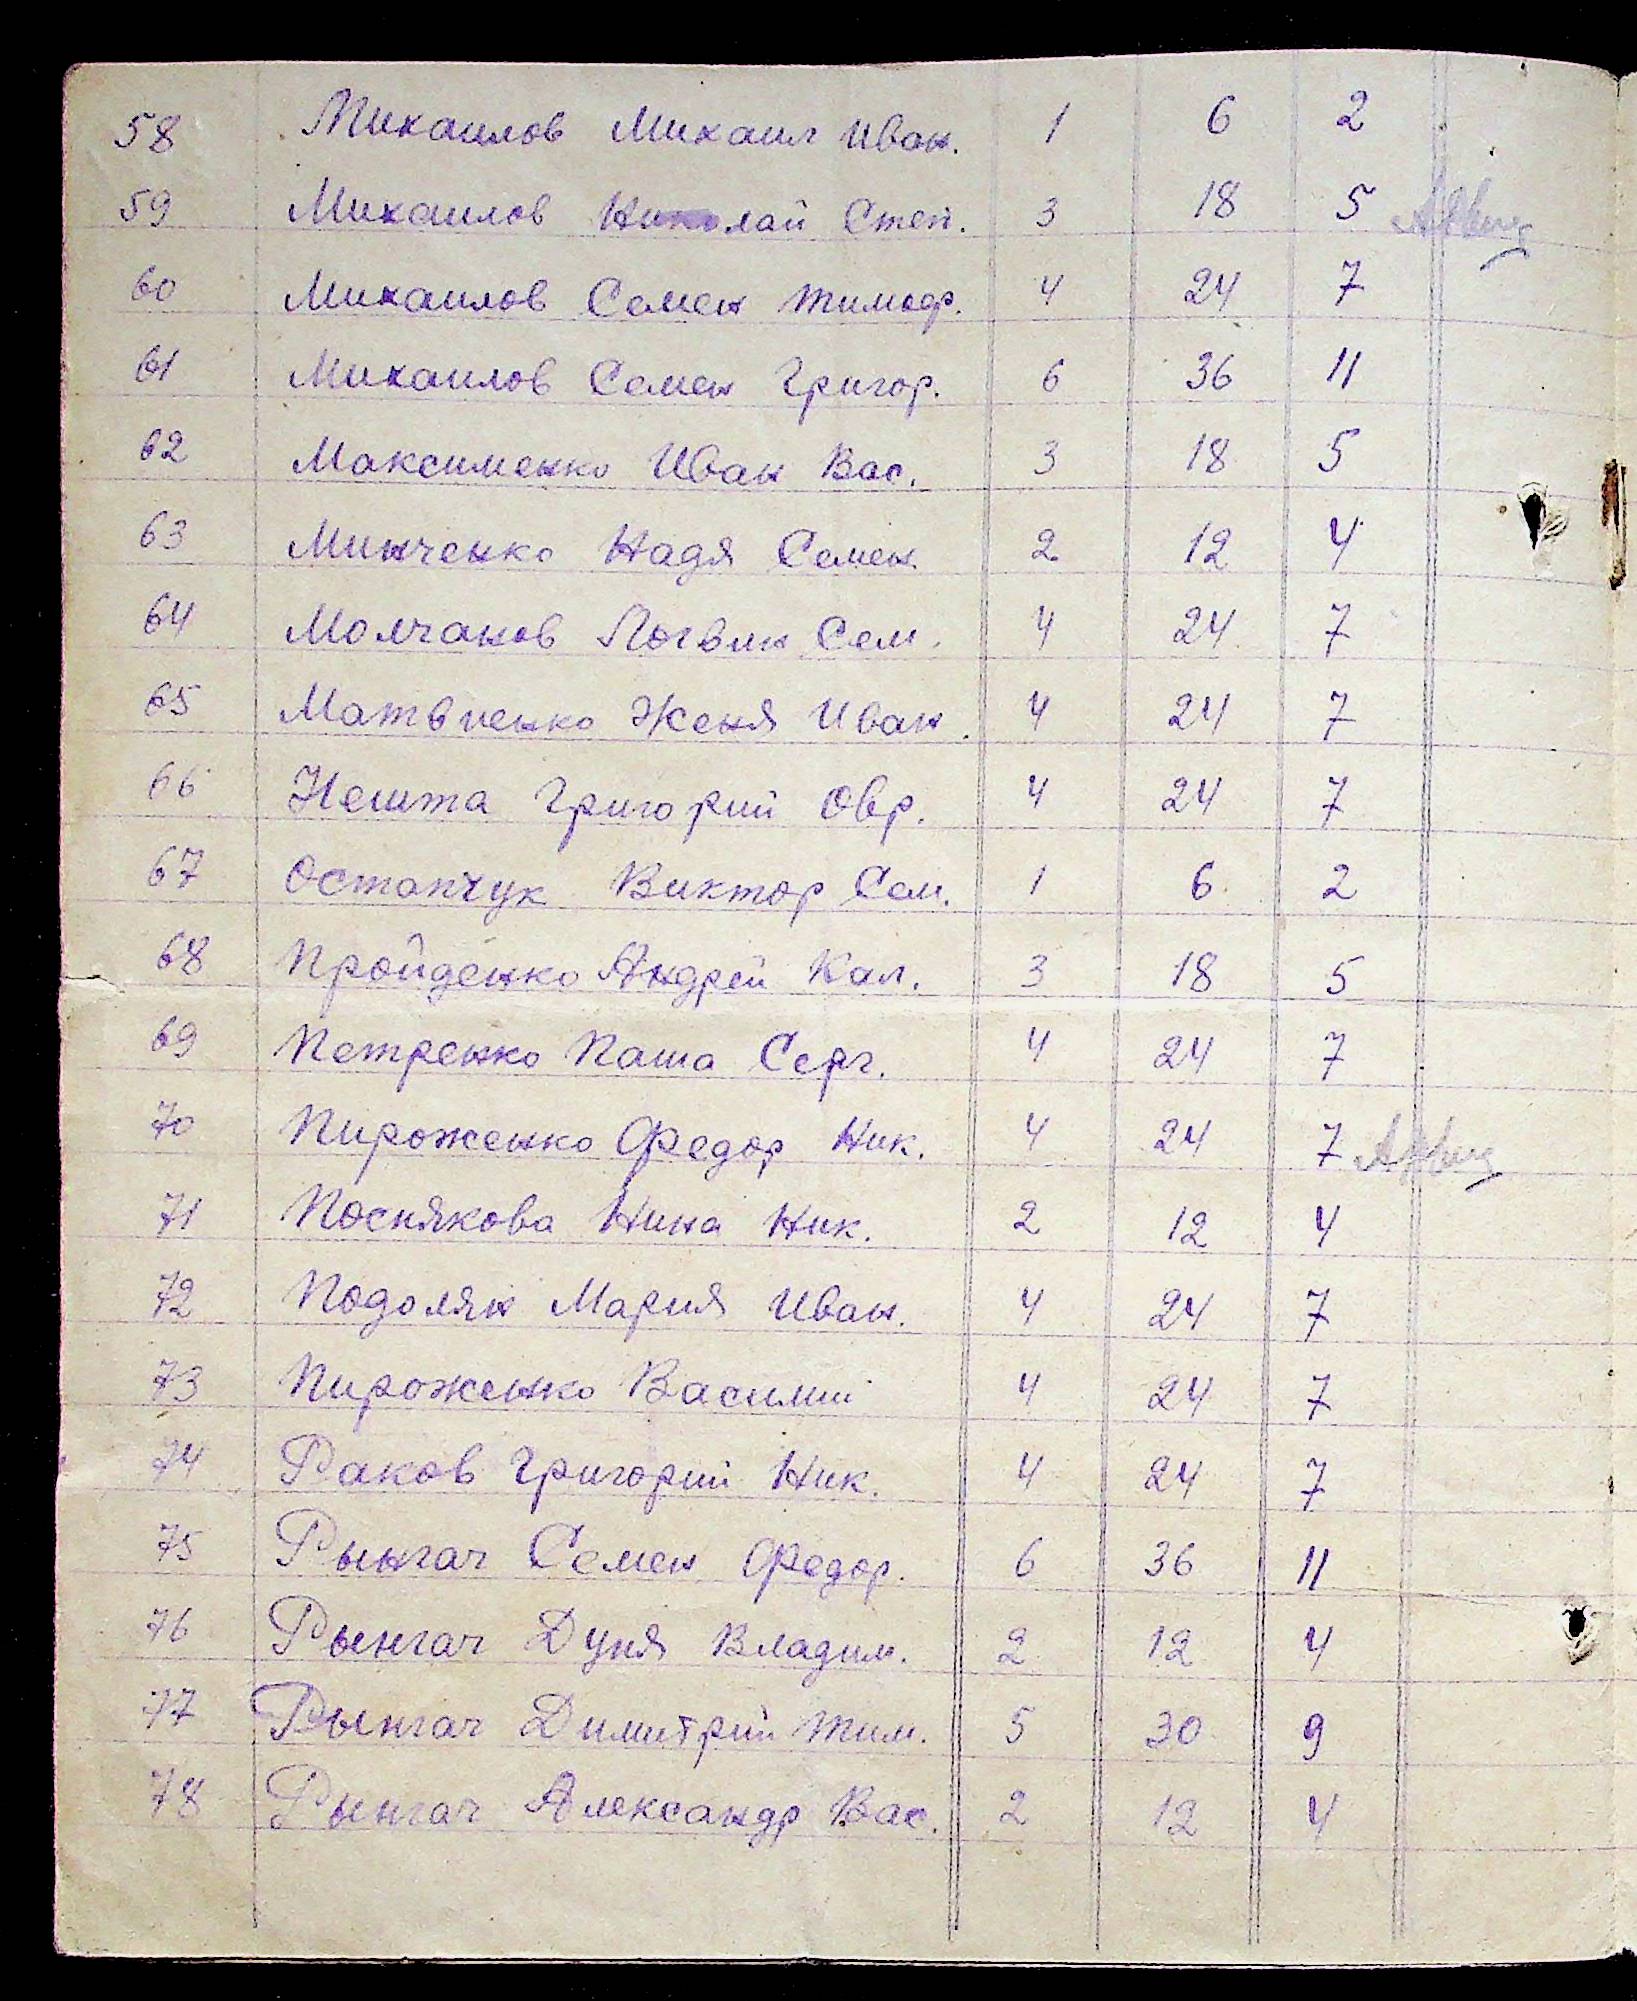 58 Михаилов Михаил Иван. 1 6 2
59 Михаилов Николай Степ. 3 18 5
60 Михаилов Семен Тимоф. 4 24 7
61 Михаилов Семен Григор. 6 36 11
62 Максименко Иван Вас. 3 18 5
63 Минченко Надя Семен. 2 12 4
64 Молчанов Логвин Сем. 4 24 7
65 Матвиенко Женя Иван. 4 24 7
66 Нешта Григорий Овр. 4 24 7
67 Остапчук Виктор Сем. 1 6 2
68 Пройденко Андрей Кал. 3 18 5
69 Петренко Паша Серг. 4 24 7
70 Пироженко Федор Ник. 4 24 7
71 Поснякова Нина Ник. 2 12 4
72 Подоляк Мария Иван. 4 24 7
73 Пироженко Василий 4 24 7
74 Раков Григорий Ник. 4 24 7
75 Рынгач Семен Федор. 6 36 11
76 Рынгач Дуня Владим. 2 12 4
77 Рынгач Димитрий Тим. 5 30 9
78 Рынгач Александр Вас. 2 12 4